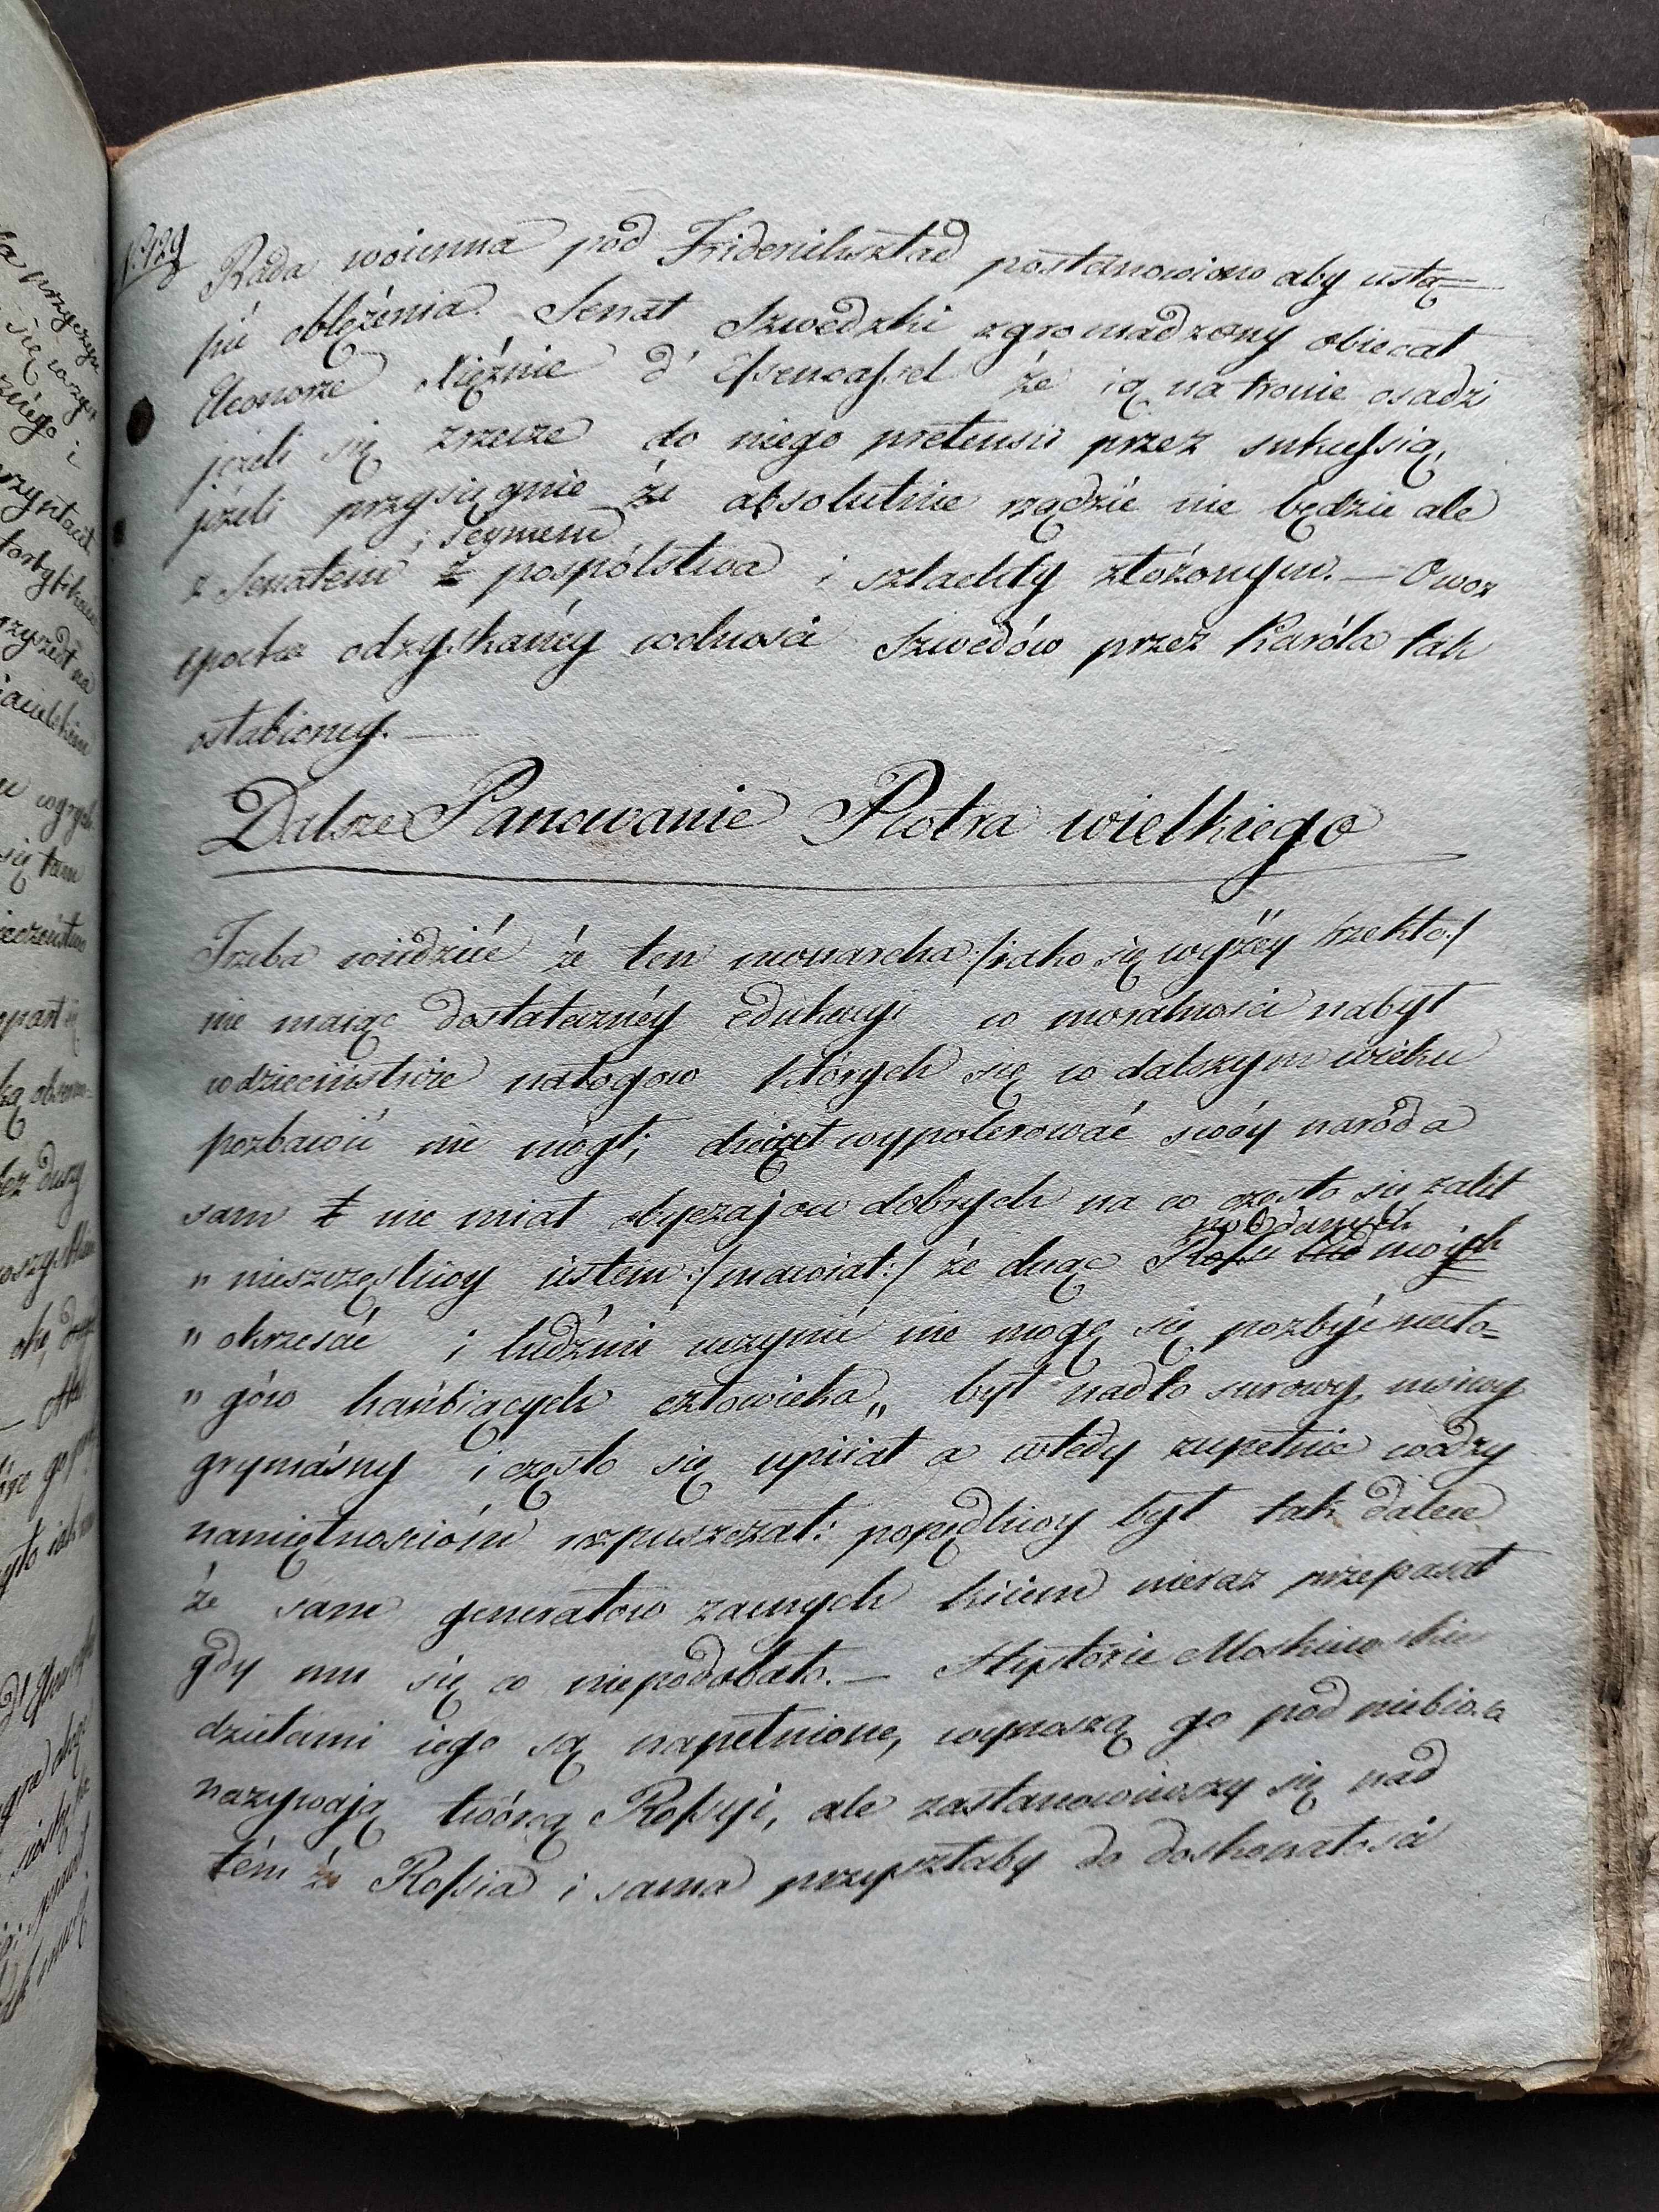 Rada woienna pod Fridenihsztad postanowiono aby ustą=
pić oblężenia. Senat Szwedzki zgromadzony obiecał
Eleonorze Xiężnie d' Essencassel że ią na tronie osadzi
jeżeli się zrzecze do niego pretensii przez sukcessią,
jżeli przysięgnie że absolutnie rządzić nie będzie ale
i Seymem
z Senatem z pospólstwa i szlachty złóżonym. — Owoz
epocha odzyskanéy wolnosci Szwedów przez Karóla tak
osłabioney. —
Dalsze Panowanie Piotra wielkiego
Trzeba wiedzieć że ten monarcha :/iako się wyżéy rzekło:/
nie maiąc dostatecznéy edukacyi w moralnosci nabył
w dziecinstwie nałogow których się w dalszym wieku
pozbawić nie mógł; chciał wypolerować swóy naród a
sam nie miał obyczajow dobrych na co często się żalił
" nieszczęsliwy iestem :/mawiał:/ że chcąc
poddanych
moich
" okrzesać i ludźmi uczynić nie mogę się pozbyć nało=
" gów hańbiących człowieka„ był nadto surowy, msciwy
grymásny i często się upiiał a wtedy zupełnie wodzy
namiętnosciom rozpuszczał: popędliwy był tak dalece
że sam generałow zacnych kiiem nieraz przepasał
gdy mu się co niepodobało. — Hystorie Moskiewskie
dziełami iego są napełnione, wynoszą go pod niebiosa
nazywają twórcą Rossyi, ale zastanowiwszy się nad
tém że Rossia i sama przyszłaby do doskonałosci